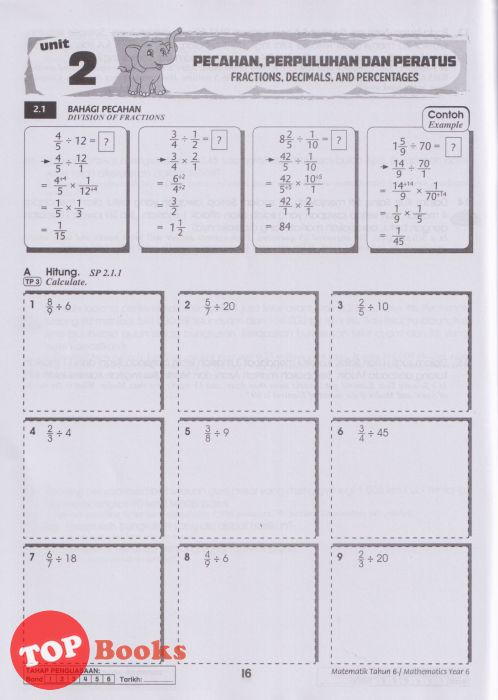 unit
2
PECAHAN, PERPULUHAN DAN PERATUS
FRACTIONS, DECIMALS, AND PERCENTAGES
2.1 BAHAGI PECAHAN
DIVISION OF FRACTIONS
Contoh
Example
4/5 ÷ 12 = ?
→ 4/5 ÷ 12/1
= 4÷4/5 × 1/12÷4
= 1/5 × 1/3
= 1/15
3/4 ÷ 1/2 = ?
→ 3/4 × 2/1
= 6÷2/4÷2
= 3/2
= 1 1/2
8 2/5 ÷ 1/10 = ?
→ 42/5 ÷ 1/10
= 42/5÷5 × 10÷5/1
= 42/1 × 2/1
= 84
1 5/9 ÷ 70 = ?
→ 14/9 ÷ 70/1
= 14÷14/9 × 1/70÷14
= 1/9 × 1/5
= 1/45
A Hitung. SP 2.1.1
TP 3 Calculate.
1 8/9 ÷ 6
2 5/7 ÷ 20
3 2/5 ÷ 10
4 2/3 ÷ 4
5 3/8 ÷ 9
6 3/4 ÷ 45
7 6/7 ÷ 18
8 4/9 ÷ 6
9 2/3 ÷ 20
TOP Books
TAHAP PENGUASAAN:
Band 1 2 3 4 5 6 Tarikh:
16
Matematik Tahun 6 / Mathematics Year 6